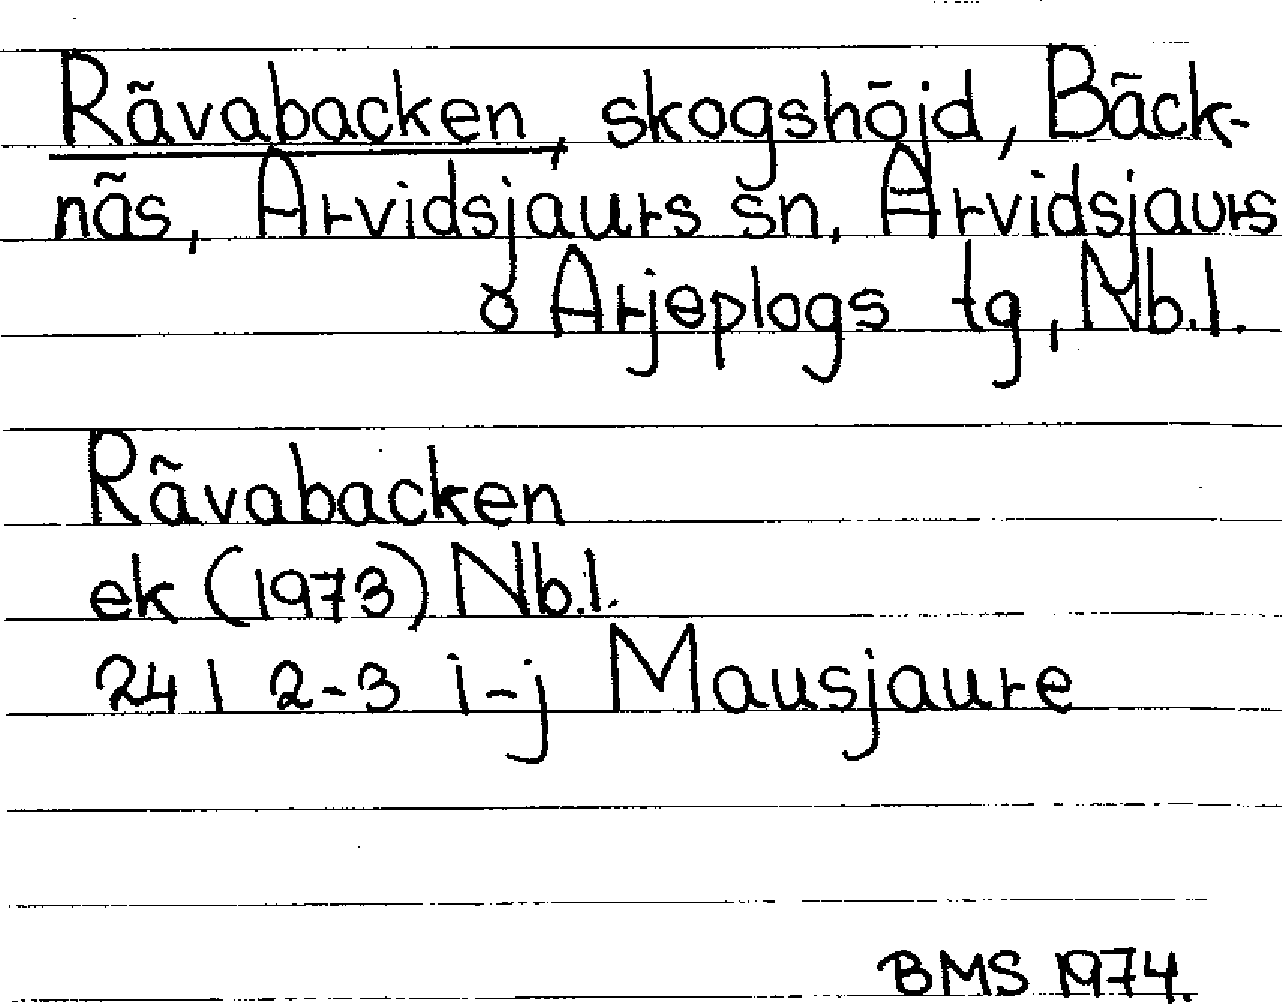 Rävabacken, skogshöjd, Bäck-
näs, Arvidsjaurs sn, Arvidsjaurs
o Arjeplogs tg, Nb.l.
Rävabacken
ek (1973) Nb.l.
24 I 2-3 i-j Mausjaure
BMS 1974.